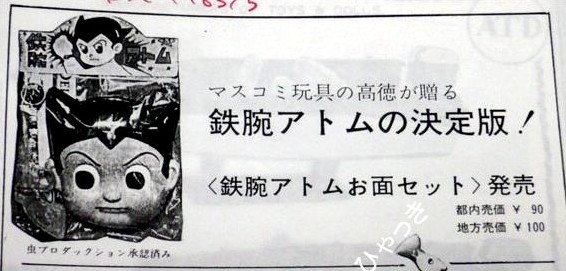 鉄腕アトム
マスコミ玩具の高徳が贈る
鉄腕アトムの決定版!
〈鉄腕アトムお面セット〉発売
都内売価 ¥ 90
地方売価 ¥ 100
虫プロダックション承認済み
ひやっき
TOYS & DOLLS
ATD